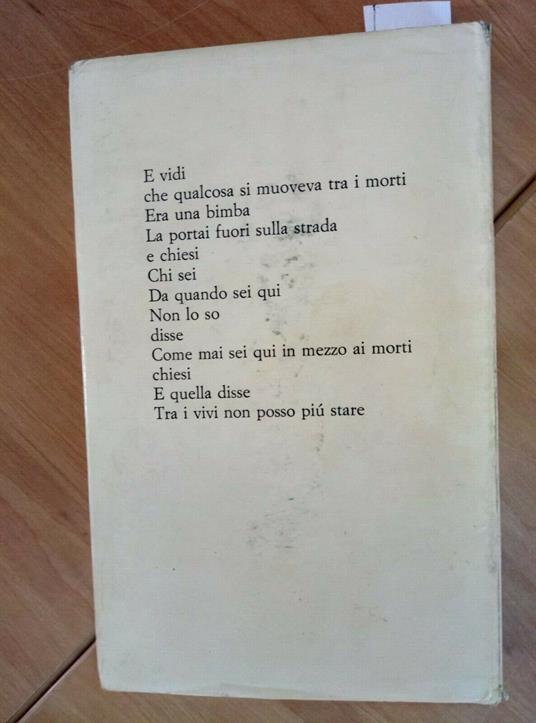 E vidi
che qualcosa si muoveva tra i morti
Era una bimba
La portai fuori sulla strada
e chiesi
Chi sei
Da quando sei qui
Non lo so
disse
Come mai sei qui in mezzo ai morti
chiesi
E quella disse
Tra i vivi non posso piú stare